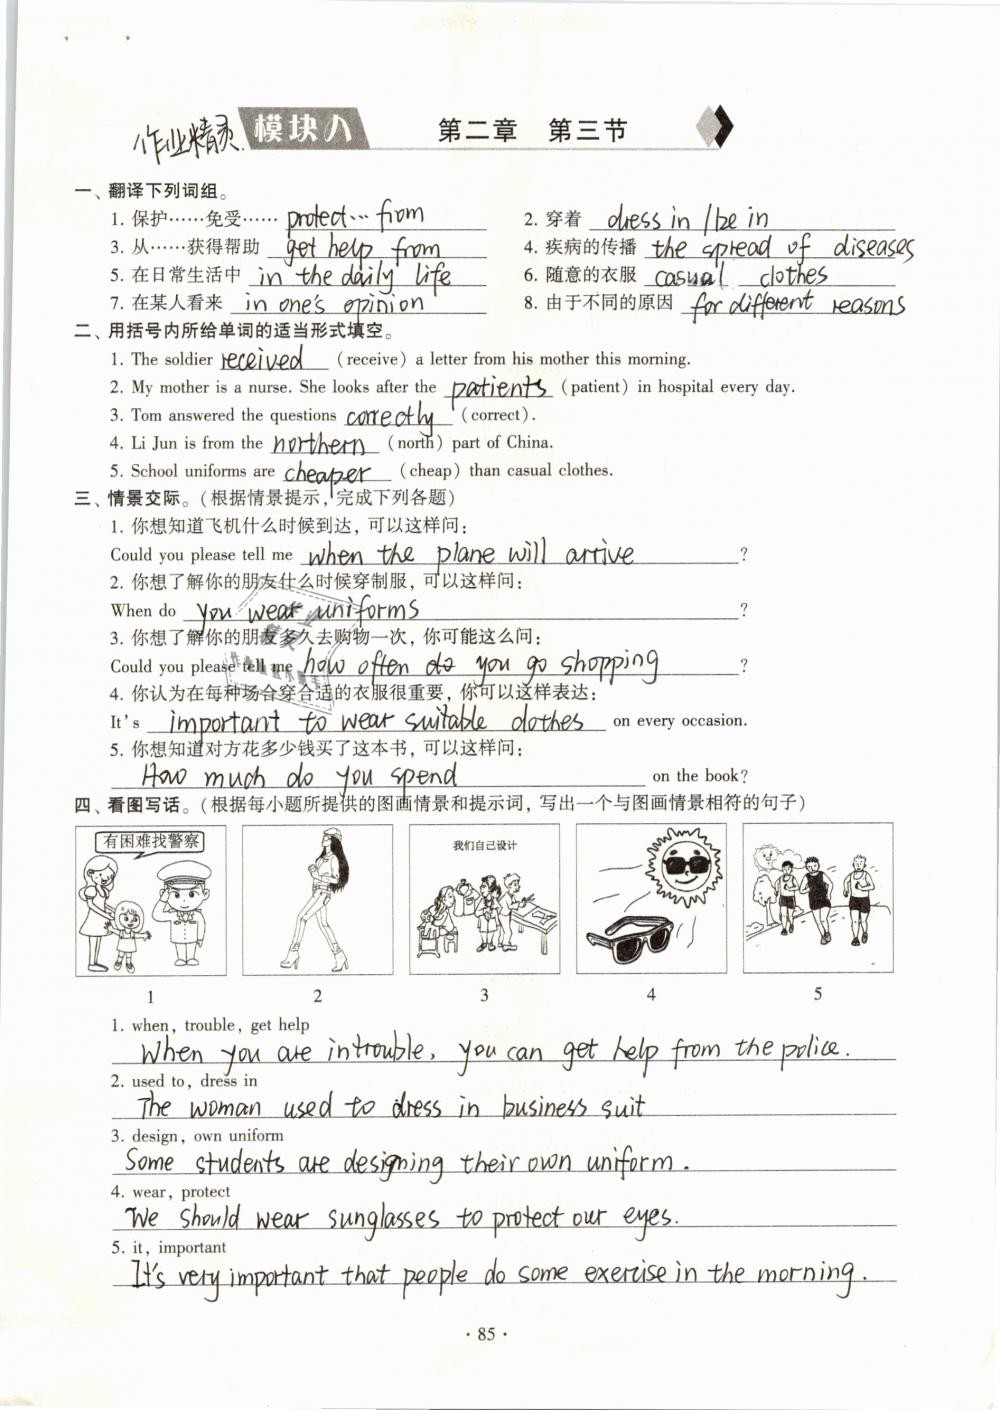 作业精灵
模块八 第二章 第三节
一、翻译下列词组。
1. 保护……免受…… protect… from 2. 穿着 dress in / be in
3. 从……获得帮助 get help from 4. 疾病的传播 the spread of diseases
5. 在日常生活中 in the daily life 6. 随意的衣服 casual clothes
7. 在某人看来 in one's opinion 8. 由于不同的原因 for different reasons
二、用括号内所给单词的适当形式填空。
1. The soldier received (receive) a letter from his mother this morning.
2. My mother is a nurse. She looks after the patients (patient) in hospital every day.
3. Tom answered the questions correctly (correct).
4. Li Jun is from the northern (north) part of China.
5. School uniforms are cheaper (cheap) than casual clothes.
三、情景交际。(根据情景提示，完成下列各题)
1. 你想知道飞机什么时候到达，可以这样问：
Could you please tell me when the plane will arrive ?
2. 你想了解你的朋友什么时候穿制服，可以这样问：
When do you wear uniforms ?
3. 你想了解你的朋友多久去购物一次，你可能这么问：
Could you please tell me how often do you go shopping ?
4. 你认为在每种场合穿合适的衣服很重要，你可以这样表达：
It's important to wear suitable clothes on every occasion.
5. 你想知道对方花多少钱买了这本书，可以这样问：
How much do you spend on the book?
四、看图写话。(根据每小题所提供的图画情景和提示词，写出一个与图画情景相符的句子)
有困难找警察
我们自己设计
1 2 3 4 5
1. when, trouble, get help
When you are in trouble, you can get help from the police.
2. used to, dress in
The woman used to dress in business suit
3. design, own uniform
Some students are designing their own uniform.
4. wear, protect
We should wear sunglasses to protect our eyes.
5. it, important
It's very important that people do some exercise in the morning.
· 85 ·